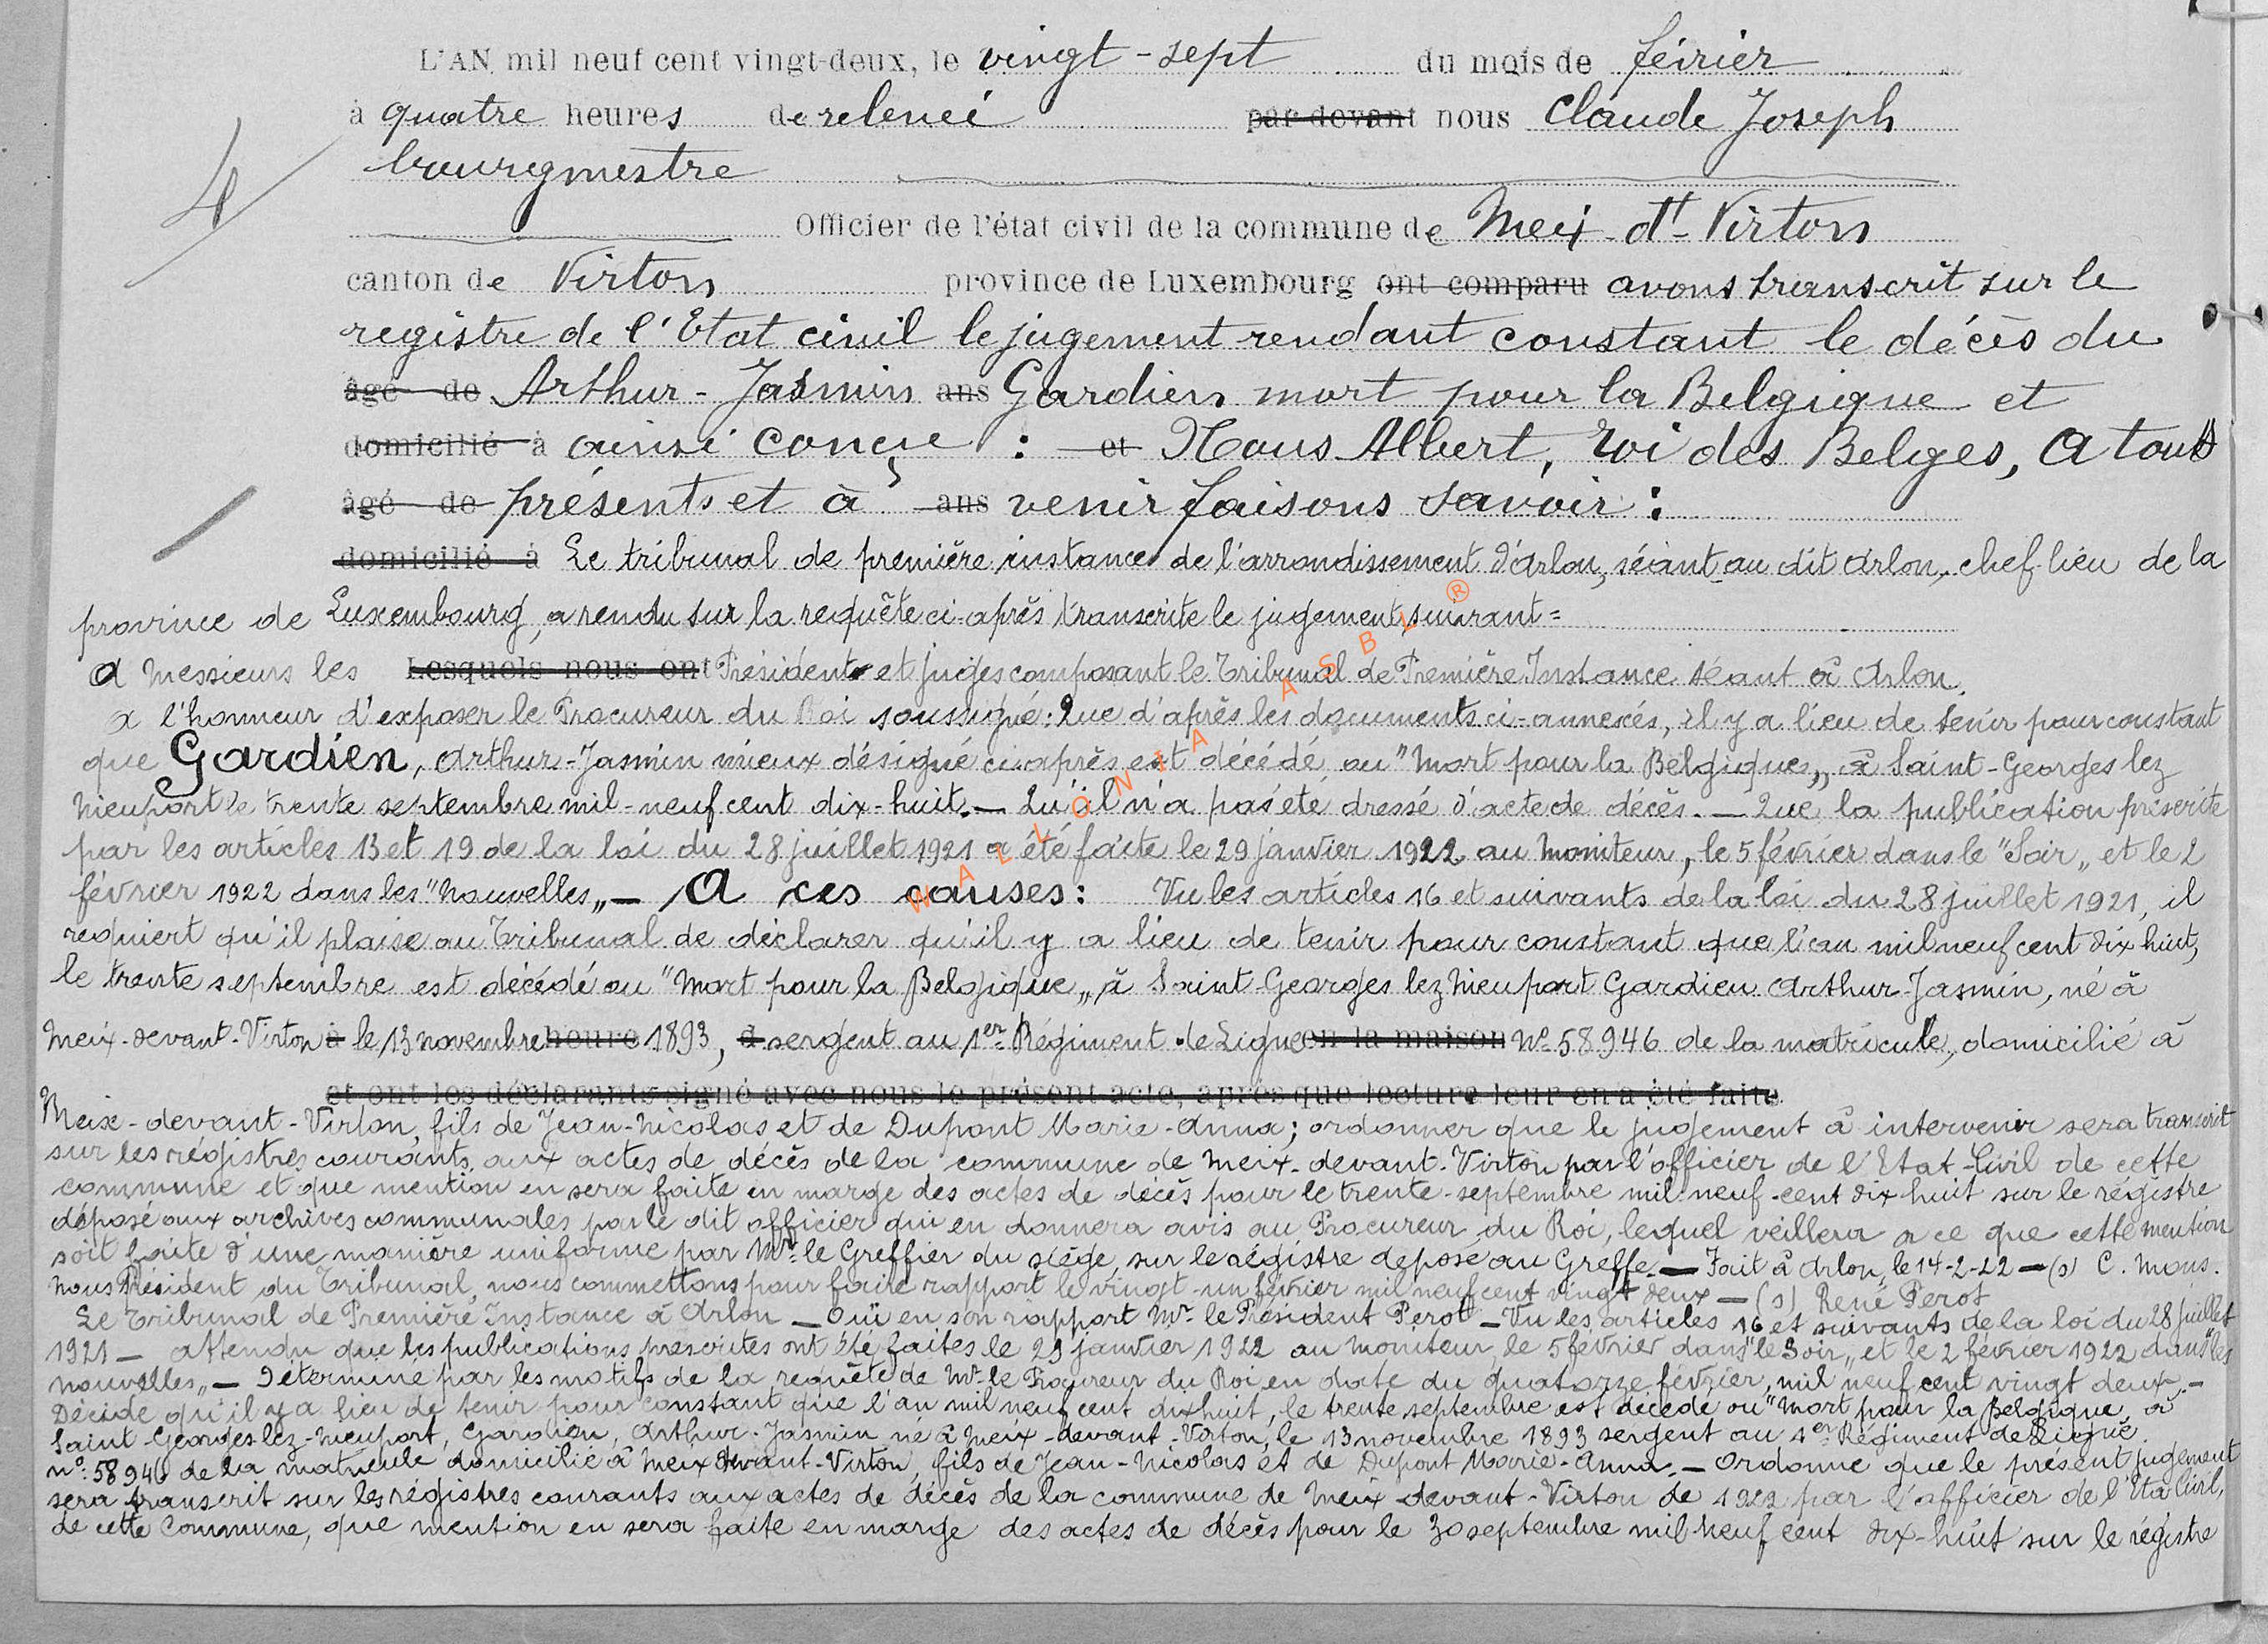 L'AN mil neuf cent vingt-deux, le vingt-sept du mois de février
à quatre heures de relevée par devant nous Claude Joseph
4
bourgmestre
Officier de l'état civil de la commune de Meix-dt-Virton
canton de Virton province de Luxembourg ont comparu avons transcrit sur le
registre de l'Etat civil le jugement rendant constant le décès du
âgé de Arthur-Jasmin ans Gardien mort pour la Belgique et
domicilié à ainsi conçu : et Nous Albert, roi des Belges, A tous
âgé de présents et à ans venir faisons savoir :
domicilié à Le tribunal de première instance de l'arrondissement d'Arlon, séant au dit Arlon, chef-lieu de la
province de Luxembourg, a rendu sur la requête ci-après transcrite le jugement suivant =
A Messieurs les Lesquels nous ont Président et Juges composant le Tribunal de Première Instance séant à Arlon.
a l'honneur d'exposer le Procureur du Roi soussigné : Que d'après les documents ci-annexés, il y a lieu de tenir pour constant
que Gardien, Arthur-Jasmin mieux désigné ci-après est décédé ou "Mort pour la Belgique„ à Saint-Georges lez
Nieuport le trente septembre mil-neuf cent dix-huit. — Qu'il n'a pas été dressé d'acte de décès. — Que la publication prescrite
par les articles 13 et 19 de la loi du 28 juillet 1921 a été faite le 29 janvier 1922 au Moniteur, le 5 février dans le "Soir„ et le 2
février 1922 dans les "Nouvelles„ — A ces causes : Vu les articles 16 et suivants de la loi du 28 juillet 1921, il
requiert qu'il plaise au Tribunal de déclarer qu'il y a lieu de tenir pour constant que l'an mil neuf cent dix huit,
le trente septembre est décédé ou "Mort pour la Belgique„ à Saint-Georges lez Nieuport Gardien Arthur-Jasmin, né à
Meix-devant-Virton à le 13 novembre heure 1893, à sergent au 1er Régiment de Ligne en la maison No 58946 de la matricule, domicilié à
et ont les déclarants signé avec nous le présent acte, après que lecture leur en a été faite
Meix-devant-Virton, fils de Jean-Nicolas et de Dupont Marie-Anna ; ordonner que le jugement à intervenir sera transcrit
sur les régistres courants aux actes de décès de la commune de Meix-devant-Virton par l'officier de l'Etat-Civil de cette
commune et que mention en sera faite en marge des actes de décès pour le trente-septembre mil-neuf-cent dix huit sur le régistre
déposé aux archives communales par le dit officier qui en donnera avis au Procureur du Roi, lequel veillera a ce que cette mention
soit faite d'une manière uniforme par Mr. le Greffier du siège, sur le régistre déposé au Greffe. — Fait à Arlon, le 14-2-22 — (s) C. Mons.
Nous Président du Tribunal, nous commettons pour faire rapport le vingt-un février mil neuf cent vingt deux — (s) René Perot
Le Tribunal de Première Instance à Arlon — Ouï en son rapport Mr. le Président Perot — Vu les articles 16 et suivants de la loi du 28 juillet
1921 — attendu que les publications prescrites ont été faites le 29 janvier 1922 au Moniteur, le 5 février dans "le Soir„ et le 2 février 1922 dans "les
nouvelles„ — Déterminé par les motifs de la requête de Mr. le Procureur du Roi en date du quatorze février, mil neuf cent vingt deux. —
Décide qu'il y a lieu de tenir pour constant que l'an mil neuf cent dix huit, le trente septembre est décédé ou "Mort pour la Belgique, à
Saint-Georges-lez-Nieuport, Gardien, Arthur-Jasmin né à Meix-devant-Virton, le 13 novembre 1893 sergent au 1er Régiment de Ligne.
no. 58946 de la matricule domicilié à Meix devant-Virton, fils de Jean-Nicolas et de Dupont Marie-Anna. — Ordonne que le présent jugement
sera transcrit sur les régistres courants aux actes de décès de la commune de Meix-devant-Virton de 1922 par l'officier de l'Eta Civil,
de cette Commune, que mention en sera faite en marge des actes de décès pour le 30 septembre mil neuf cent dix-huit sur le régistre
WALLONIA ASBL ®